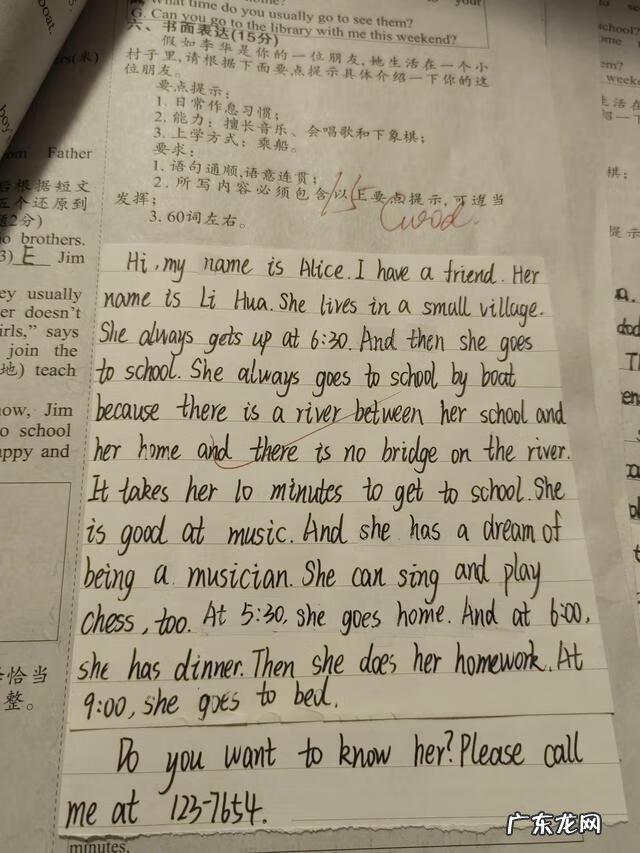 What time do you usually go to see them?
G. Can you go to the library with me this weekend?
六、书面表达(15分)
假如李华是你的一位朋友,她生活在一个小
村子里,请根据下面要点提示具体介绍一下你的这
位朋友。
要点提示:
1. 日常作息习惯;
2. 能力:擅长音乐、会唱歌和下象棋;
3. 上学方式:乘船。
要求:
1. 语句通顺,语意连贯;
2. 所写内容必须包含以上要点提示,可适当
发挥;
3. 60词左右。
15
Good.
Hi, my name is Alice. I have a friend. Her
name is Li Hua. She lives in a small village.
She always gets up at 6:30. And then she goes
to school. She always goes to school by boat
because there is a river between her school and
her home and there is no bridge on the river.
It takes her 10 minutes to get to school. She
is good at music. And she has a dream of
being a musician. She can sing and play
chess, too. At 5:30, she goes home. And at 6:00,
she has dinner. Then she does her homework. At
9:00, she goes to bed.
Do you want to know her? Please call
me at 123-7654.
minutes.
boat.
boy
from Father
后根据短文
五个还原到
2分)
brothers.
3) E Jim
ey usually
er doesn't
irls," says
join the
地) teach
now, Jim
o school
appy and
恰当
整。
广东龙网